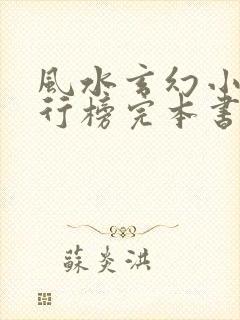 風水玄幻小
行榜完本書
蘇炎洪